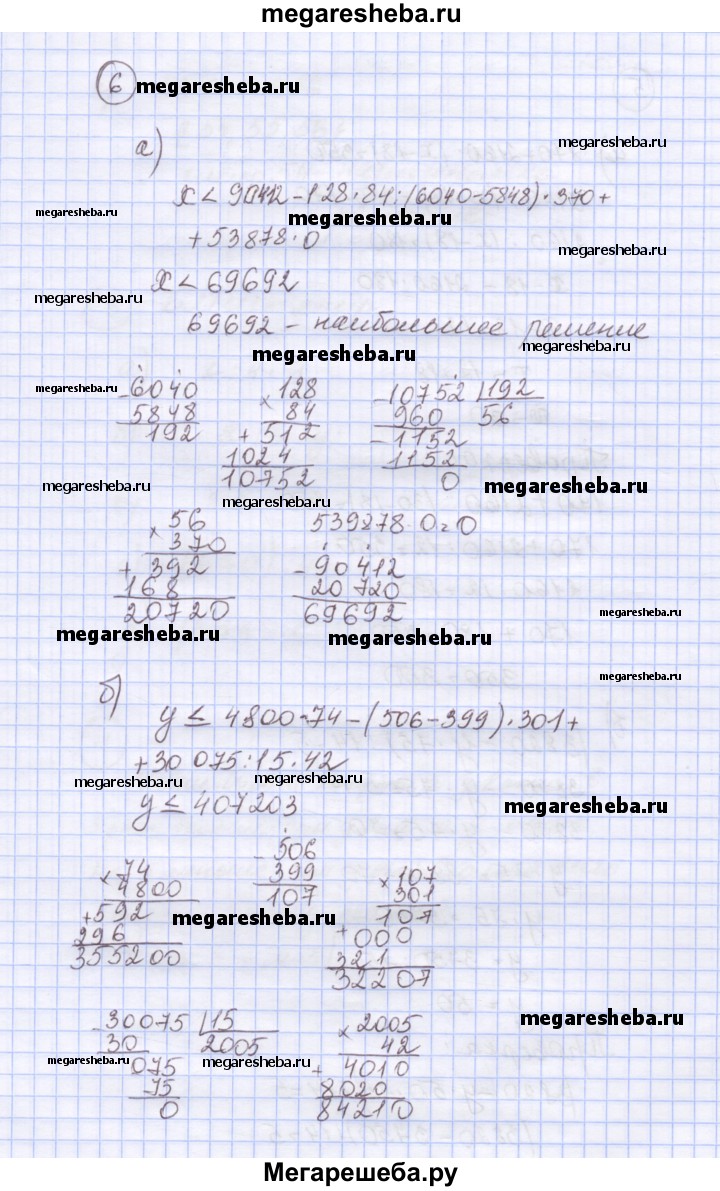 megaresheba.ru
6 megaresheba.ru
а) megaresheba.ru
x < 90412 - 128·84:(6040-5848)·370+
megaresheba.ru megaresheba.ru
+53878·0 megaresheba.ru
x < 69692
megaresheba.ru
69692 - наибольшее решение
megaresheba.ru megaresheba.ru
megaresheba.ru
-6040 ×128 -10752 |192
5848 84 960 56
192 +512 -1152
1024 1152
10752 0
megaresheba.ru megaresheba.ru megaresheba.ru
×56 539278·0=0
370
+392 -90412
168 20720
20720 69692
megaresheba.ru megaresheba.ru megaresheba.ru
б) megaresheba.ru
y ≤ 4800·74-(506-399)·301+
+30 075:15·42
megaresheba.ru megaresheba.ru
y ≤ 407203 megaresheba.ru
×74 -506 ×107
4800 399 301
+592 107 107
296 +000
355200 321
32207
megaresheba.ru
-30075 |15 ×2005
30 2005 42
075 +4010
75 8020
0 84210
megaresheba.ru megaresheba.ru megaresheba.ru
Мегарешеба.ру